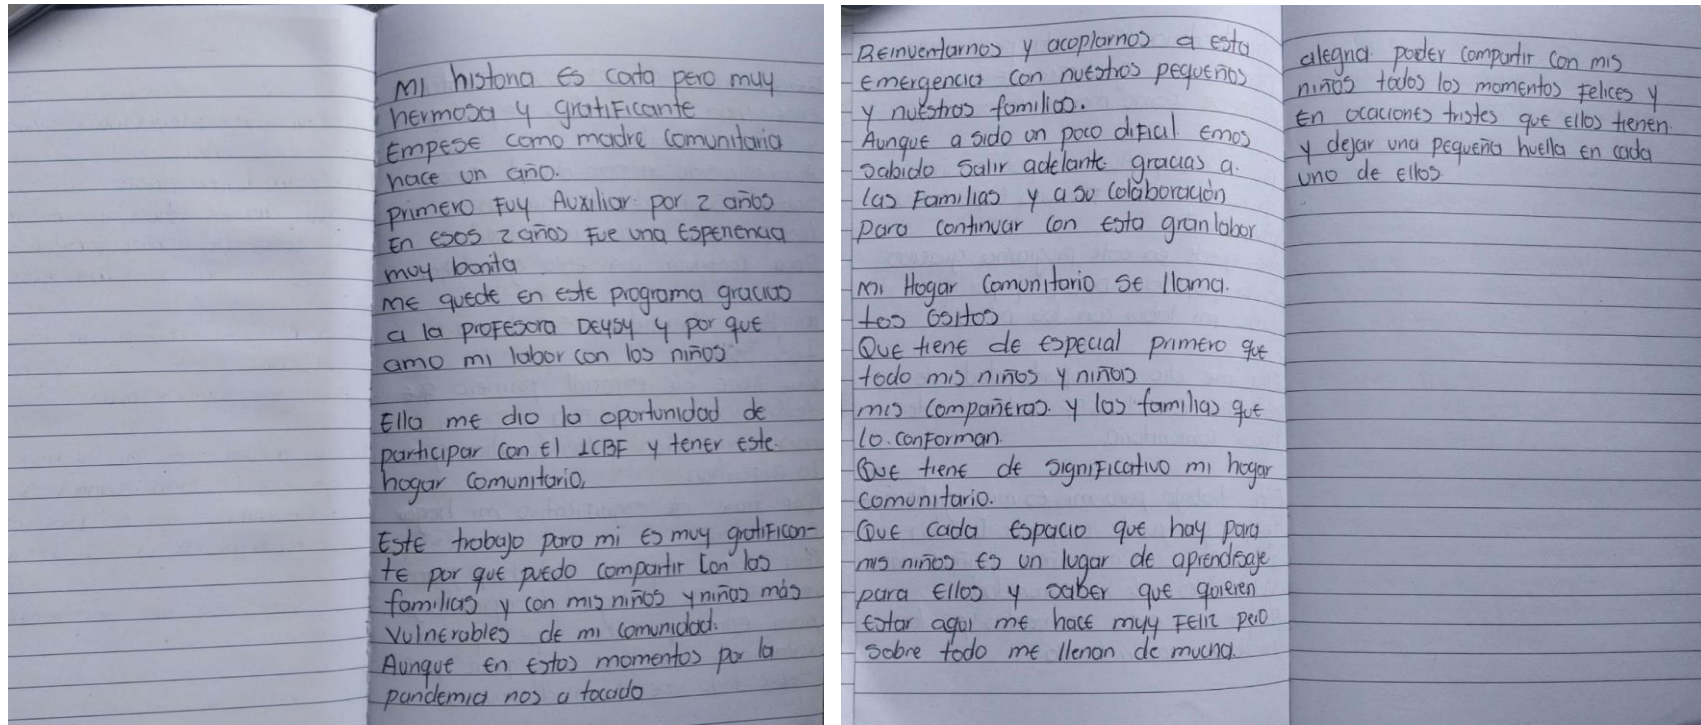 Mi historia es corta pero muy
hermosa y gratificante
Empese como madre comunitaria
hace un año.
primero Fuy Auxiliar por 2 años
En esos 2 años Fue una Esperiencia
muy bonita
me quede en este programa gracias
a la profesora Deysy y por que
amo mi labor con los niños
Ella me dio la oportunidad de
participar con el ICBF y tener este
hogar comunitario,
Este trabajo para mi es muy gratifican-
te por que puedo compartir con las
familias y con mis niños y niñas más
vulnerables de mi comunidad.
Aunque en estos momentos por la
pandemia nos a tocado
Reinventarnos y acoplarnos a esta
emergencia con nuestros pequeños
y nuestras familias.
Aunque a sido un poco dificil emos
sabido salir adelante gracias a
las Familias y a su colaboración
para continuar con esta gran labor
Mi Hogar Comunitario se llama.
Los Ositos
Que tiene de especial primero que
todo mis niños y niñas
mis compañeras y las familias que
lo conforman.
Que tiene de significativo mi hogar
comunitario.
Que cada espacio que hay para
mis niños es un lugar de aprendisaje
para Ellos y saber que quieren
estar aqui me hace muy Feliz pero
sobre todo me llenan de mucha.
alegria poder compartir con mis
niños todos los momentos Felices y
En ocaciones tristes que ellos tienen.
y dejar una pequeña huella en cada
uno de Ellos